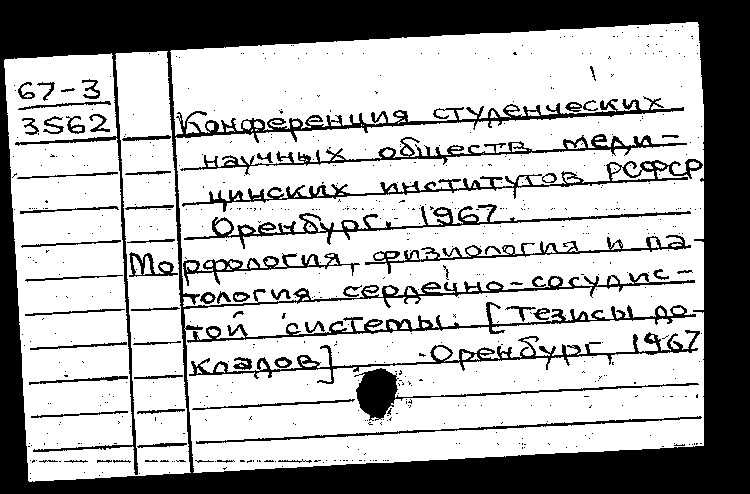 67-3
3562
Конференция студенческих
научных обществ меди-
цинских институтов РСФСР.
Оренбург. 1967.
Морфология, физиология и па-
тология сердечно-сосудис-
той системы. [Тезисы до-
кладов] . -Оренбург, 1967